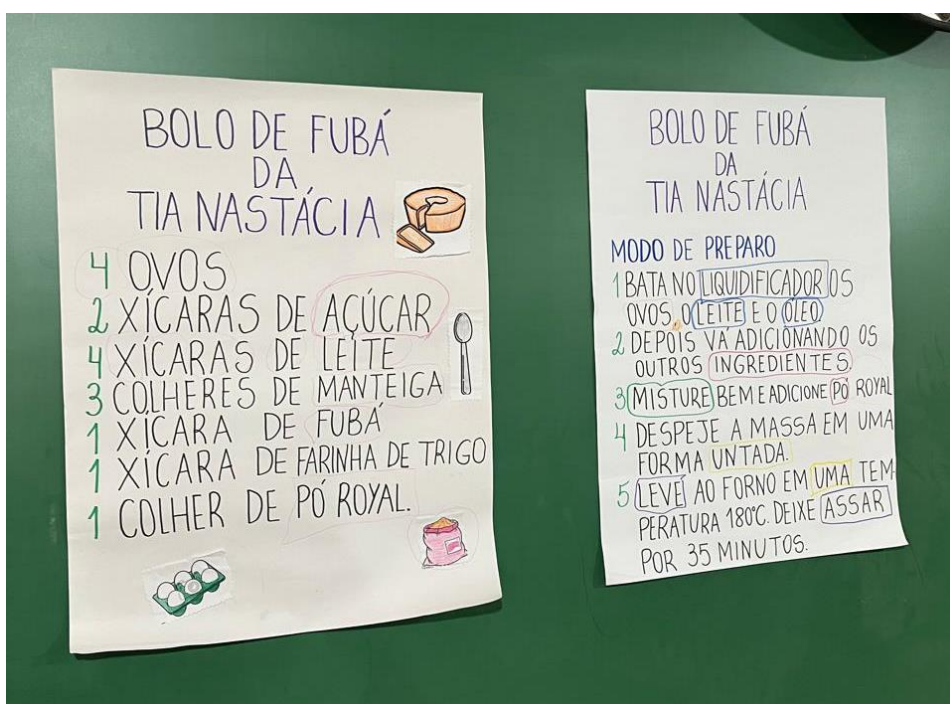 BOLO DE FUBÁ
DA
TIA NASTÁCIA
4 OVOS
2 XÍCARAS DE AÇÚCAR
4 XÍCARAS DE LEITE
3 COLHERES DE MANTEIGA
1 XÍCARA DE FUBÁ
1 XÍCARA DE FARINHA DE TRIGO
1 COLHER DE PÓ ROYAL.
BOLO DE FUBÁ
DA
TIA NASTÁCIA
MODO DE PREPARO
1 BATA NO LIQUIDIFICADOR OS
OVOS, O LEITE E O ÓLEO
2 DEPOIS VA ADICIONANDO OS
OUTROS INGREDIENTES.
3 MISTURE BEM E ADICIONE PÓ ROYAL
4 DESPEJE A MASSA EM UMA
FORMA UNTADA.
5 LEVE AO FORNO EM UMA TEM
PERATURA 180°C. DEIXE ASSAR
POR 35 MINUTOS.